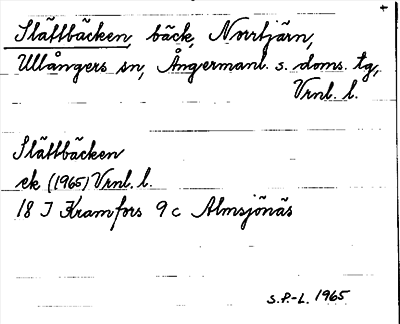 Slättbäcken, bäck, Norrtjärn,
Ullångers sn, Ångermanl. s. doms. tg,
Vrnl. l.
Slättbäcken
ek (1965) Vrnl. l.
18 J Kramfors 9 c Almsjönäs
S.P.-L. 1965